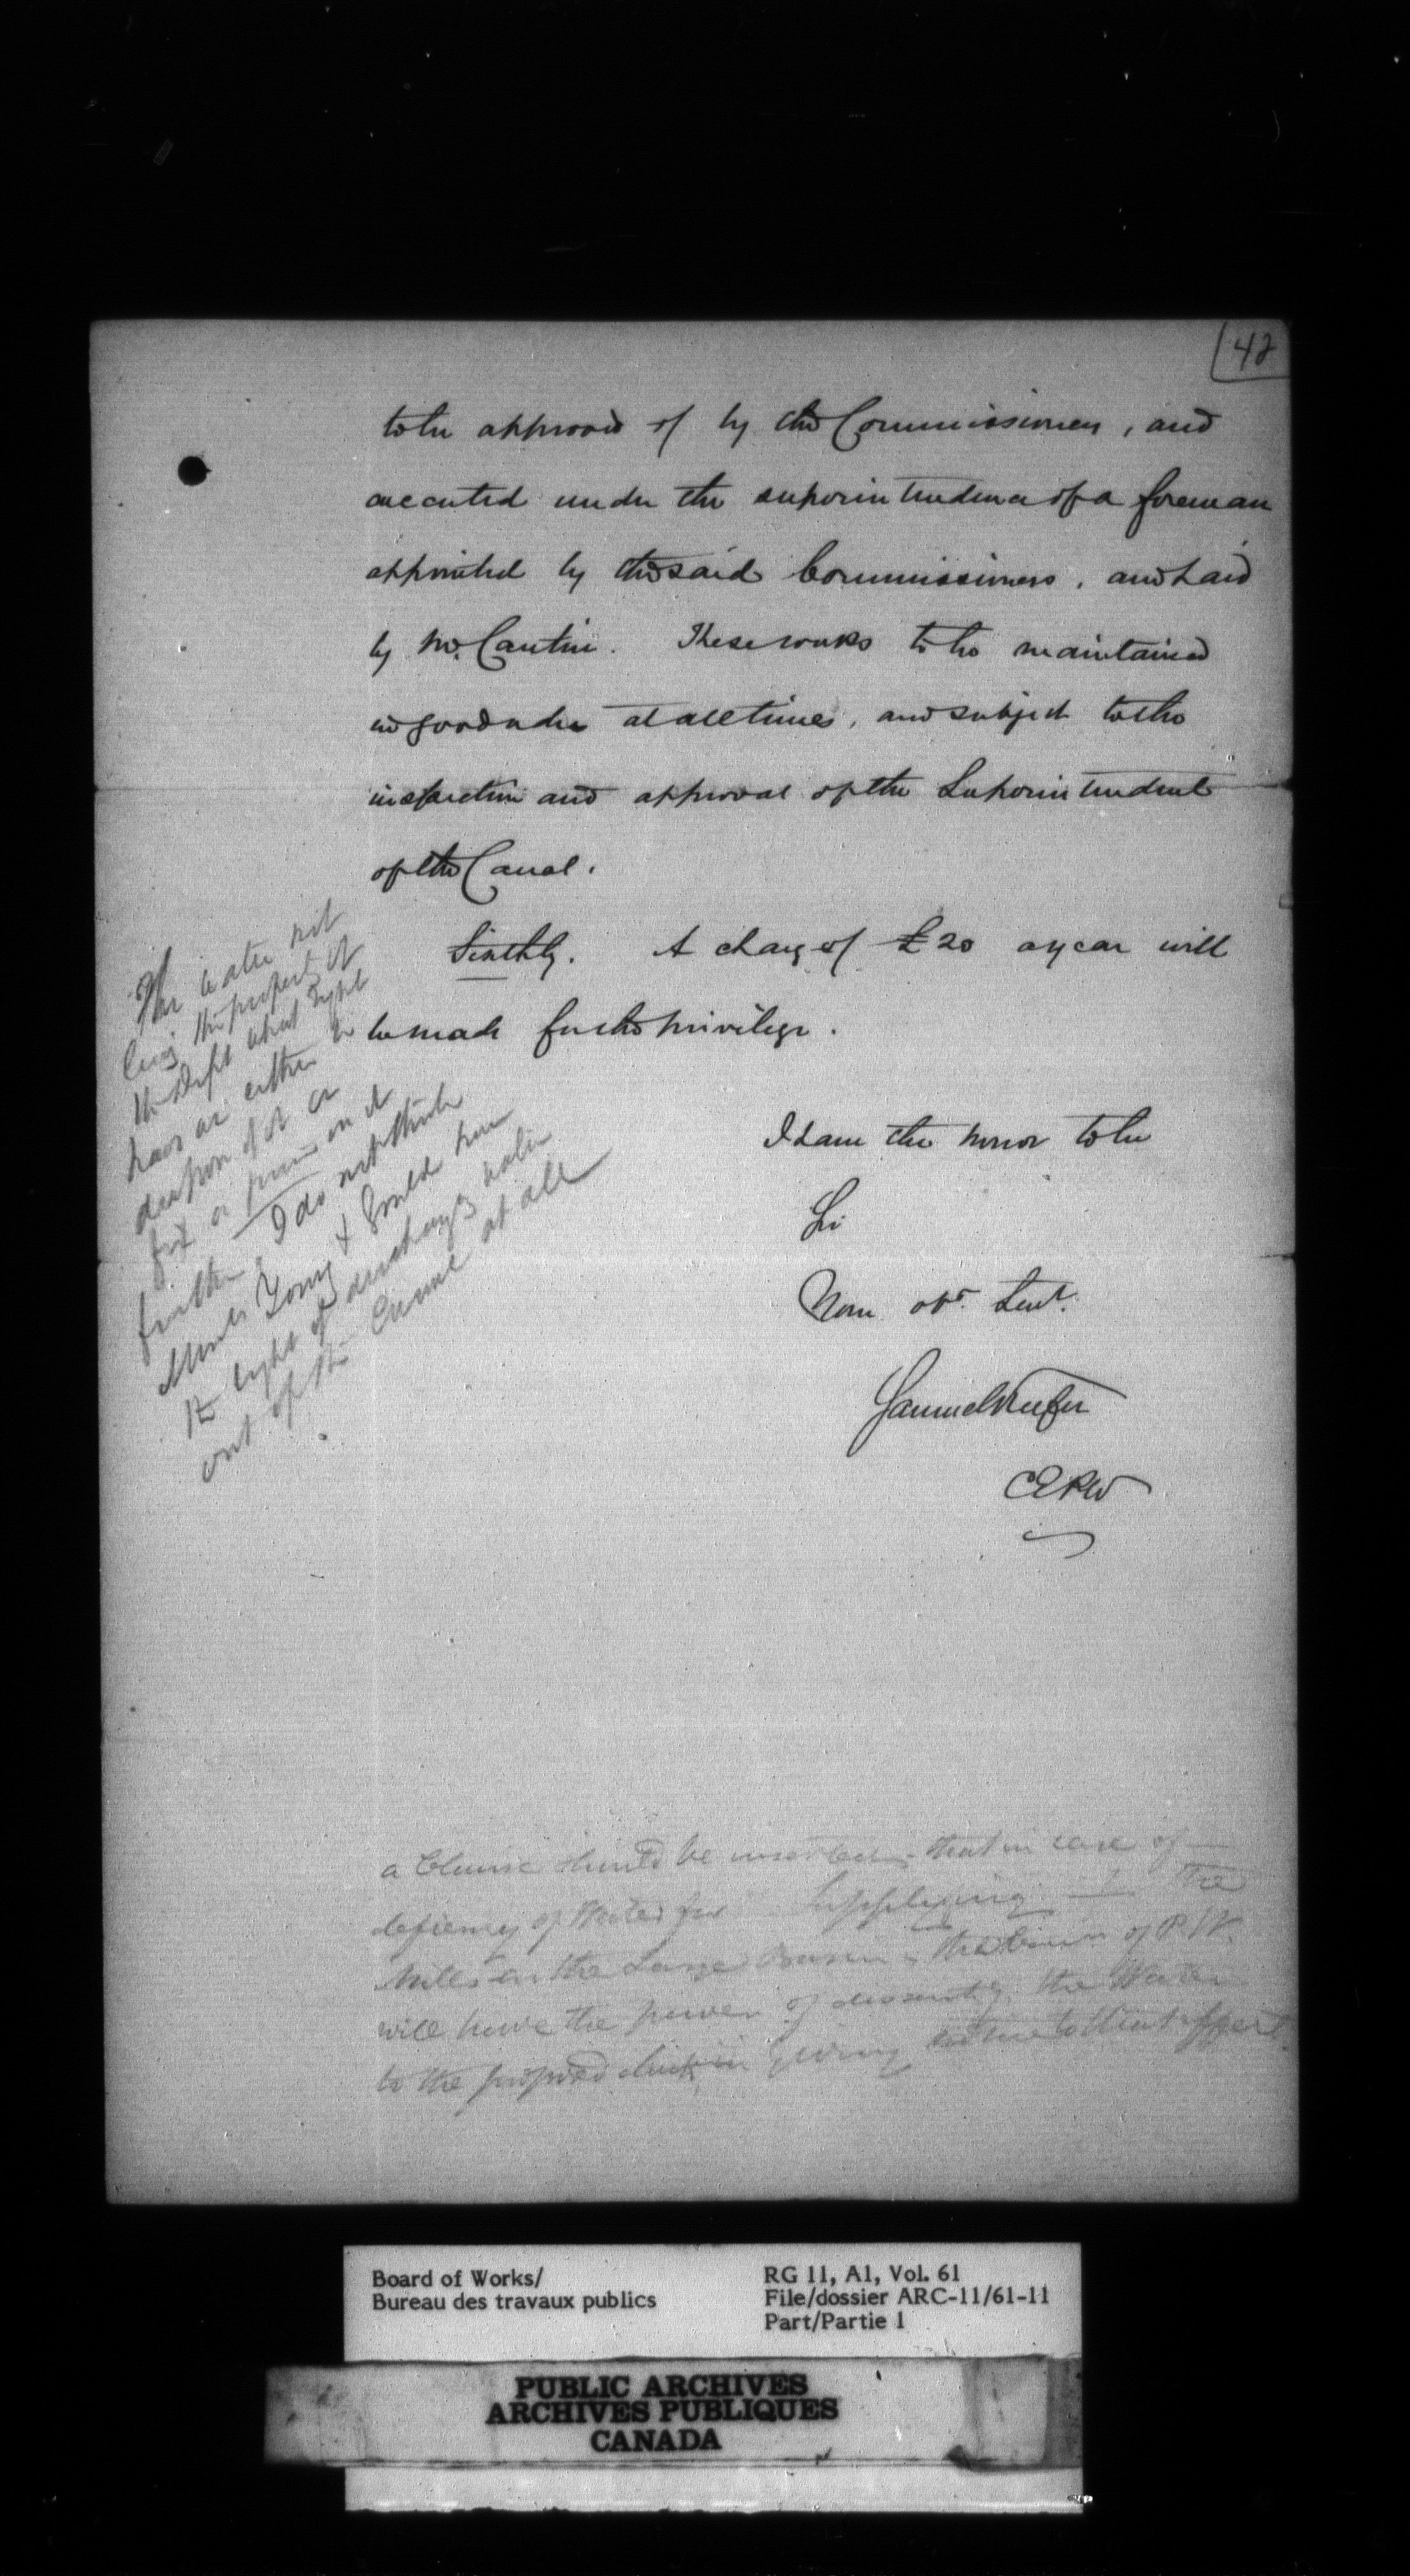 42
to be approved of by the Commissioners, and
executed under the superintendence of a foreman
appointed by the said Commissioners, and paid
by Mr. Cantin. These works to be maintained
in good order at all times, and subject to the
inspection and approval of the Superintendent
of the Canal.
Sixthly. A charge of £20 a year will
be made for the privilege.
I have the honor to be
Sir
Your obt. Servt.
Samuel Keefer
CEPW
The water not
being the property of
the Dept what right
have we either to
dispose of it or
fix a price on it
further. I do not think
Messrs Young & Gould have
the right of discharging water
out of the Canal at all
a Clause should be inserted, that in case of
defiency of Water for Supplying the
Mills on the Large Basin, the of P.W.
will have the power of the Water
to the proposed dock in giving notice to that effect
Board of Works/
Bureau des travaux publics
RG 11, A1, Vol. 61
File/dossier ARC-11/61-11
Part/Partie 1
PUBLIC ARCHIVES
ARCHIVES PUBLIQUES
CANADA